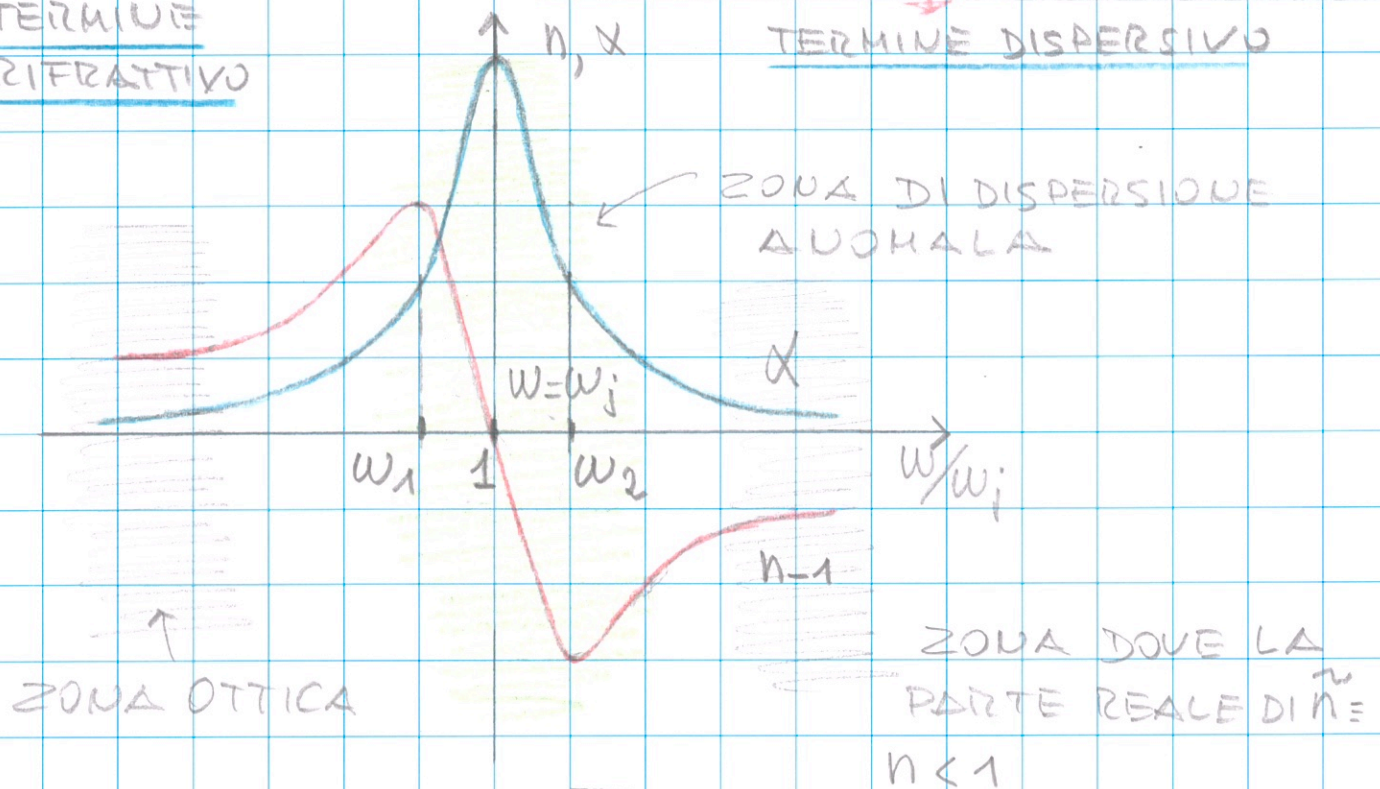 TERMINE
RIFRATTIVO
n, α
TERMINE DISPERSIVO
ZONA DI DISPERSIONE
ANOMALA
α
ω=ωj
ω1
1
ω2
ω/ωj
n-1
ZONA OTTICA
ZONA DOVE LA
PARTE REALE DI ñ=
n<1